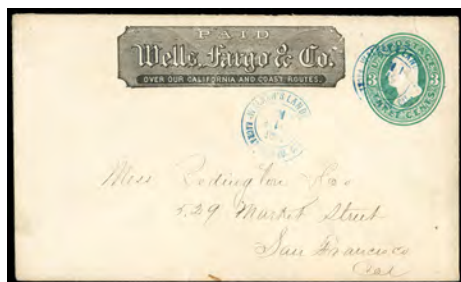 PAID
Wells, Fargo & Co.
OVER OUR CALIFORNIA AND COAST ROUTES.
U.S. POSTAGE
3 3
THREE CENTS
Mess Redington & Co
529 Market Street
San Francisco
Cal